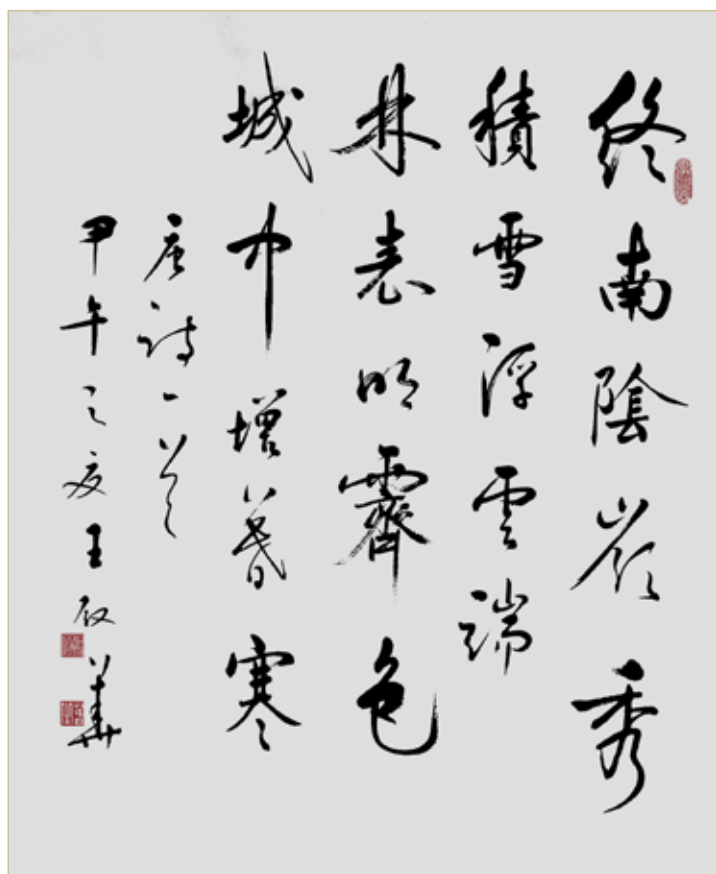 終南陰嶺秀
積雪浮雲端
林表明霽色
城中增暮寒
唐詩一首
甲午之夏王華